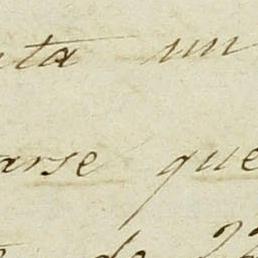 ta un
arse que
de 22